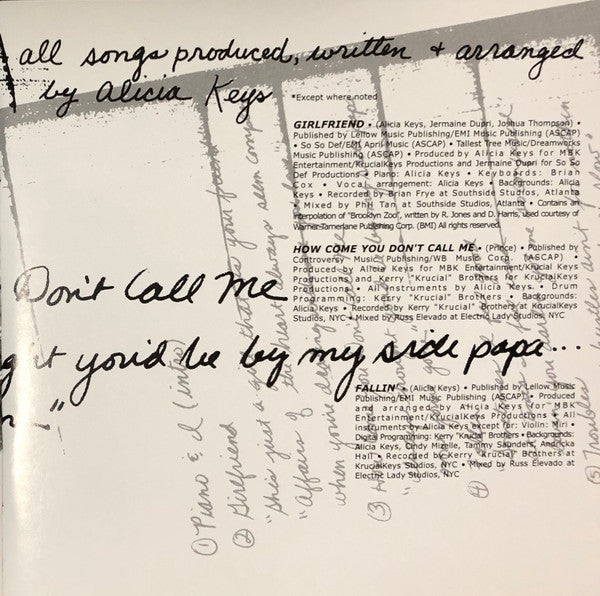 all songs produced, written + arranged
by Alicia Keys
*Except where noted
GIRLFRIEND • (Alicia Keys, Jermaine Dupri, Joshua Thompson) •
Published by Lellow Music Publishing/EMI Music Publishing (ASCAP)
• So So Def/EMI April Music (ASCAP) • Tallest Tree Music/Dreamworks
Music Publishing (ASCAP) • Produced by Alicia Keys for MBK
Entertainment/KrucialKeys Productions and Jermaine Dupri for So So
Def Productions • Piano: Alicia Keys • Keyboards: Brian
Cox • Vocal arrangement: Alicia Keys • Backgrounds: Alicia
Keys • Recorded by Brian Frye at Southside Studios, Atlanta
• Mixed by Phil Tan at Southside Studios, Atlanta • Contains an
interpolation of "Brooklyn Zoo", written by R. Jones and D. Harris, used courtesy of
Warner-Tamerlane Publishing Corp. (BMI) All rights reserved.
HOW COME YOU DON'T CALL ME • (Prince) • Published by
Controversy Music Publishing/WB Music Corp. (ASCAP) •
Produced by Alicia Keys for MBK Entertainment/Krucial Keys
Productions and Kerry "Krucial" Brothers for KrucialKeys
Productions • All instruments by Alicia Keys • Drum
Programming: Kerry "Krucial" Brothers • Backgrounds:
Alicia Keys • Recorded by Kerry "Krucial" Brothers at KrucialKeys
Studios, NYC • Mixed by Russ Elevado at Electric Lady Studios, NYC
Don't Call Me
you'd be by my side papa...
FALLIN' • (Alicia Keys) • Published by Lellow Music
Publishing/EMI Music Publishing (ASCAP) • Produced
and arranged by Alicia Keys for MBK
Entertainment/KrucialKeys Productions • All
instruments by Alicia Keys except for: Violin: Miri •
Digital Programming: Kerry "Krucial" Brothers • Backgrounds:
Alicia Keys, Cindy Mizelle, Tammy Saunders, Andricka
Hall • Recorded by Kerry "Krucial" Brothers at
KrucialKeys Studios, NYC • Mixed by Russ Elevado at
Electric Lady Studios, NYC
① Piano & I (intro)
② Girlfriend
"she's just a girl that is your
"affairs of the heart always seem
when you're
③
④
⑤ Troubles